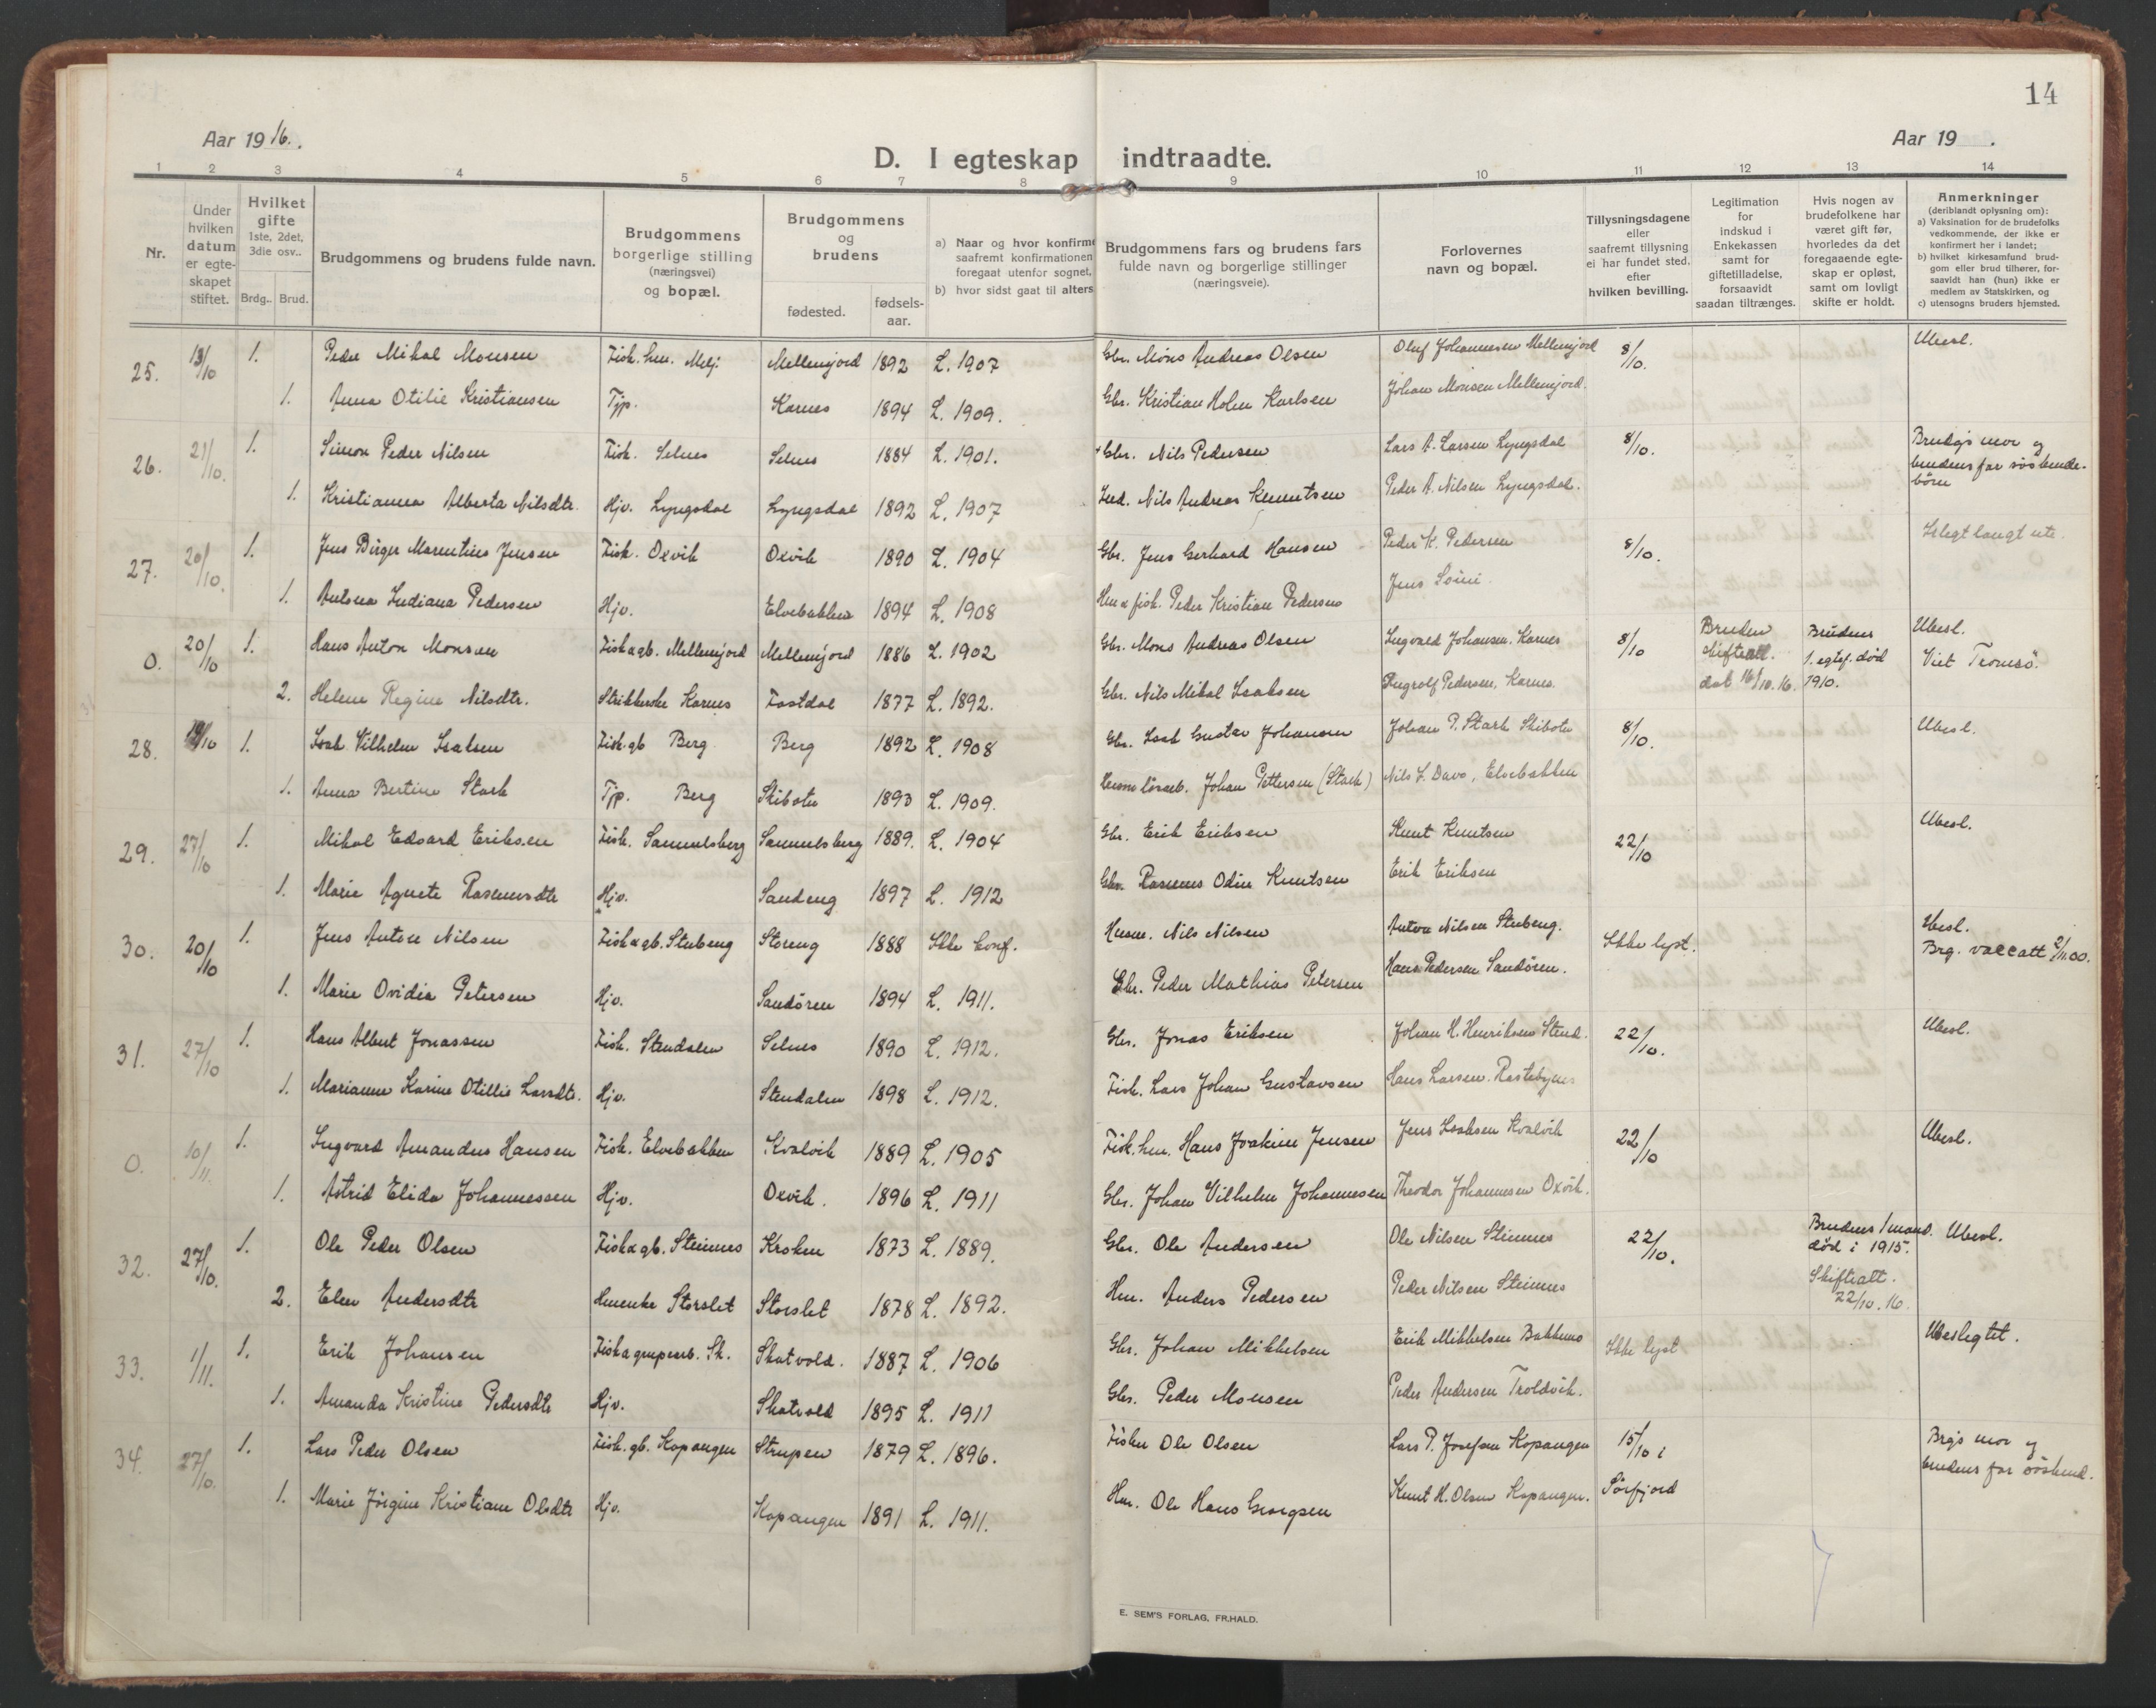 14
Aar 1916.
Aar 19 .
D. I egteskap indtraadte.
1 2 3 4 5 6 7 8 9 10 11 12 13 14
Nr.
Under hvilken datum er egteskapet stiftet.
Hvilket gifte 1ste, 2det, 3die osv..
Brdg.. Brud.
Brudgommens og brudens fulde navn.
Brudgommens borgerlige stilling (næringsvei) og bopæl.
Brudgommens og brudens
fødested.
fødsels-aar.
a) Naar og hvor konfirme
saafremt konfirmationen
foregaat utenfor sognet,
b) hvor sidst gaat til alters
Brudgommens fars og brudens fars
fulde navn og borgerlige stillinger
(næringsveie).
Forlovernes
navn og bopæl.
Tillysningsdagene
eller
saafremt tillysning
ei har fundet sted,
efter
hvilken bevilling.
Legitimation
for
indskud i
Enkekassen
samt for
giftetilladelse,
forsaavidt
saadan tiltrænges.
Hvis nogen av
brudefolkene har
været gift før,
hvorledes da det
foregaaende egte-
skap er opløst,
samt om lovligt
skifte er holdt.
Anmerkninger
(deriblandt oplysning om):
a) Vaksination for de brudefolks
vedkommende, der ikke er
konfirmert her i landet;
b) hvilket kirkesamfund brud-
gom eller brud tilhører, for-
saavidt han (hun) ikke er
medlem av Statskirken, og
c) utensogns bruders hjemsted.
25. 13/10 1. Peder Mikal Monsen Fisk. hm. Melj. Mellemjord 1892 L. 1907 Gbr. Mons Andreas Olsen Oluf Johannesen Mellemjord 8/10. Ubesl.
1. Anna Otilie Kristiansen Tjp. Karnes 1894 L. 1909. Gbr. Kristian Holm Karlsen Johan Monsen Mellemjord.
26. 21/10. 1. Simon Peder Nilsen Fisk. Selnes Selnes 1884 L. 1901. Gbr. Nils Pedersen Lars A. Larsen Lyngsdal 8/10. Brudg's mor og
brudens far søskende-
børn
1. Kristianna Alberta Nilsdtr. Hjv. Lyngsdal Lyngsdal 1892 L. 1907 Ind. Nils Andreas Knutsen Peder A. Nilsen Lyngsdal.
27. 20/10. 1. Jens Birger Marentius Jensen Fisk. Oxvik Oxvik 1890 L. 1904 Gbr. Jens Gerhard Hansen Peder K. Pedersen 8/10. Islegt langt ute.
1. Antona Indiana Pedersen Hjv. Elvebakken 1894 L. 1908 Hm & fisk. Peder Kristian Pedersen Jens Soini.
0. 20/10 1. Hans Anton Monsen Fisk & gb. Mellemjord Mellemjord 1886 L. 1902 Gbr. Mons Andreas Olsen Ingvald Johansen. Karnes 8/10 Bruden
skifteatt.
dat 16/10.16. Brudens
1. egtef. død
1910. Ubesl.
Viet Tromsø.
2. Helene Regine Nilsdtr. Strikkerske Karnes Fastdal 1877 L. 1892. Gbr. Nils Mikal Isaksen Dagrolf Pedersen, Karnes.
28. 19/10 1. Isak Vilhelm Isaksen Fisk. gb Berg Berg 1892 L. 1908 Gbr. Isak Gustav Johansen Johan P. Stark Skibotn 8/10. Ubesl.
1. Anna Bertine Stark Tjp. Berg Skibotn 1893 L. 1909. Johan Pettersen (Stark) Nils L. Davo, Elvebakken
29. 27/10 1. Mikal Edvard Eriksen Fisk. Samuelsberg Samuelsberg 1889. L. 1904 Gbr. Erik Eriksen Knut Knutsen 22/10 Ubesl.
1. Marie Agnete Rasmusdtr Hjv. Sandeng 1897 L. 1912 Gbr. Rasmus Odin Knutsen Erik Eriksen
30. 20/10 1. Jens Anton Nilsen Fisk & gb. Stubeng Storeng 1888 Ikke Conf. Husm. Nils Nilsen Anton Nilsen Stubeng. Ikke lyst. Ubesl.
Brg. vaccatt 2/11.00.
1. Marie Ovidia Petersen Hjv. Sandören 1894 L. 1911. Gbr. Peder Mathias Petersen Hans Pedersen Sandören.
31. 27/10 1. Hans Albert Jonassen Fisk. Stendalen Selnes 1890 L. 1912. Gbr. Jonas Eriksen Johan H. Henriksen Stend. 22/10. Ubesl.
1. Marianne Karine Otillie Larsdtr. Hjv. Stendalen 1898 L. 1912. Fisk. Lars Johan Gustavsen Hans Larsen. Rastebynes
0. 10/11. 1. Ingvard Amandus Hansen Fisk. Elvebakken Kvalvik 1889 L. 1905 Fisk. hm. Hans Joakim Jensen Jens Isaksen Kvalvik 22/10 Ubesl.
1. Astrid Elida Johannessen Hjv. Oxvik. 1896 L. 1911 Gbr. Johan Vilhelm Johannesen Theodor Johannesen Oxvik.
32. 27/10. 1. Ole Peder Olsen Fisk & gb. Steinnes Kroken 1873 L. 1889. Gbr. Ole Andersen Ole Nilsen Steinnes 22/10. Brudens 1 mand.
død i 1915.
Skifteatt.
22/10.16. Ubesl.
2. Elen Andersdtr Hmenke Storslet Storslet 1878 L. 1892. Hm. Anders Pedersen Peder Nilsen Steinnes
33. 1/11. 1. Erik Johansen Fisk & grupearb. Sk. Skatvold. 1887 L. 1906 Gbr. Johan Mikkelsen Erik Mikkelsen Bakkemo Ikke lyst Ubeslegtet.
1. Amanda Kristine Pedersdtr Hjv. Skatvold 1895 L. 1911 Gbr. Peder Monsen Peder Andersen Troldvik.
34. 27/10. 1. Lars Peder Olsen Fisk. gb. Kopangen Strupen 1879 L. 1896. Fisker Ole Olsen Lars P. Josefsen Kopangen 15/10 i Brg's mor og
brudens far søskend.
1. Marie Jörgine Kristiane Olsdtr Hjv. Kopangen 1891 L. 1911. Hm. Ole Hans Georgsen Knut H. Olsen Kopangen. Sörfjord
E. SEM'S FORLAG, FR.HALD.